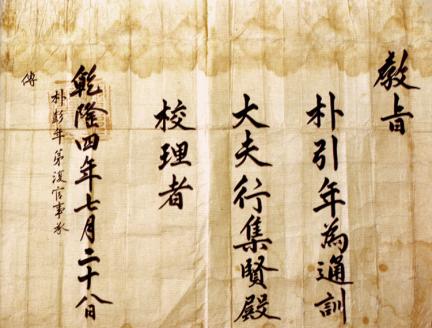 敎旨
朴引年為通訓
大夫行集賢殿
校理者
乾隆四年七月二十八日
朴彭年第復官事承
傳